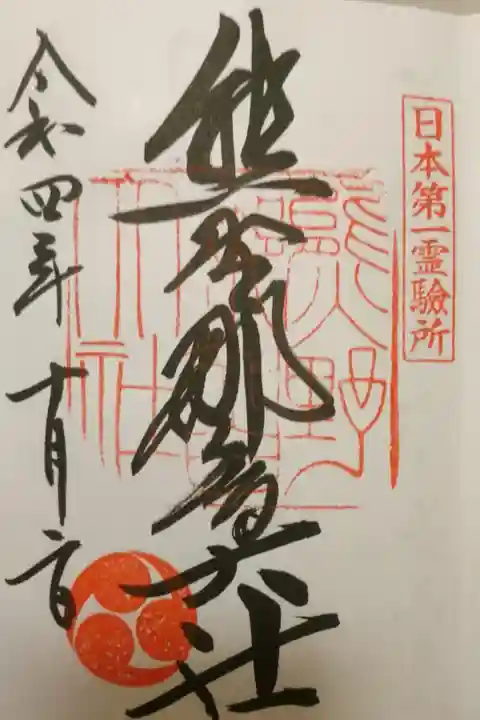 日本第一霊驗所
熊野那智大社
熊野
大社
令和四年十月二日